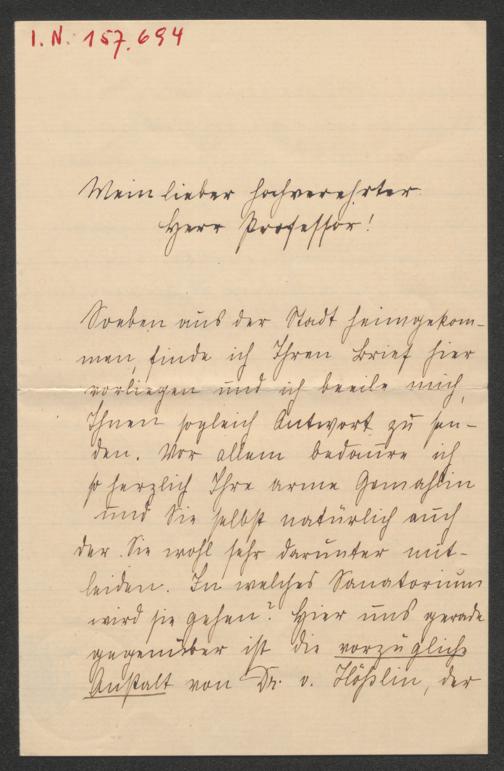 I. N. 157.694
Mein lieber hochverehrter
Herr Professor!
Soeben aus der Stadt heimgekom-
men, finde ich Ihren Brief hier
vorliegen und ich beeile mich,
Ihnen sogleich Antwort zu sen-
den. Vor allem bedaure ich
so herzlich Ihre arme Gemahlin
und Sie selbst natürlich auch
der Sie wohl sehr darunter mit-
leiden. In welches Sanatorium
wird sie gehen? Hier uns gerade
gegenüber ist die vorzügliche
Anstalt von Dr. v. Hößlin, der